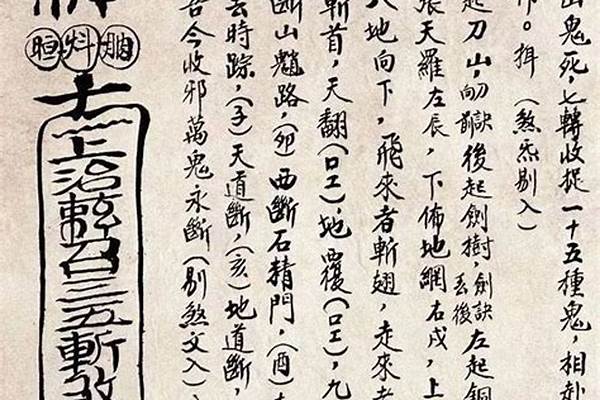 山鬼死,七轉收捉一十五種鬼,相赴
。揖(煞炁剔入)
起刀山,劒訣後起劍樹,劍訣左起銅
去後
張天羅左辰,下佈地網右戌,上
地向下,飛來者斬翅,走來者
斬首,天翻(口工),地覆(口工),九
斷山魈路,(卯)西斷石精門,(酉)
去時踪,(子)天道斷,(亥)地道斷,
吾今收邪萬鬼永斷(剔煞文入)、
上治斬召三五斬